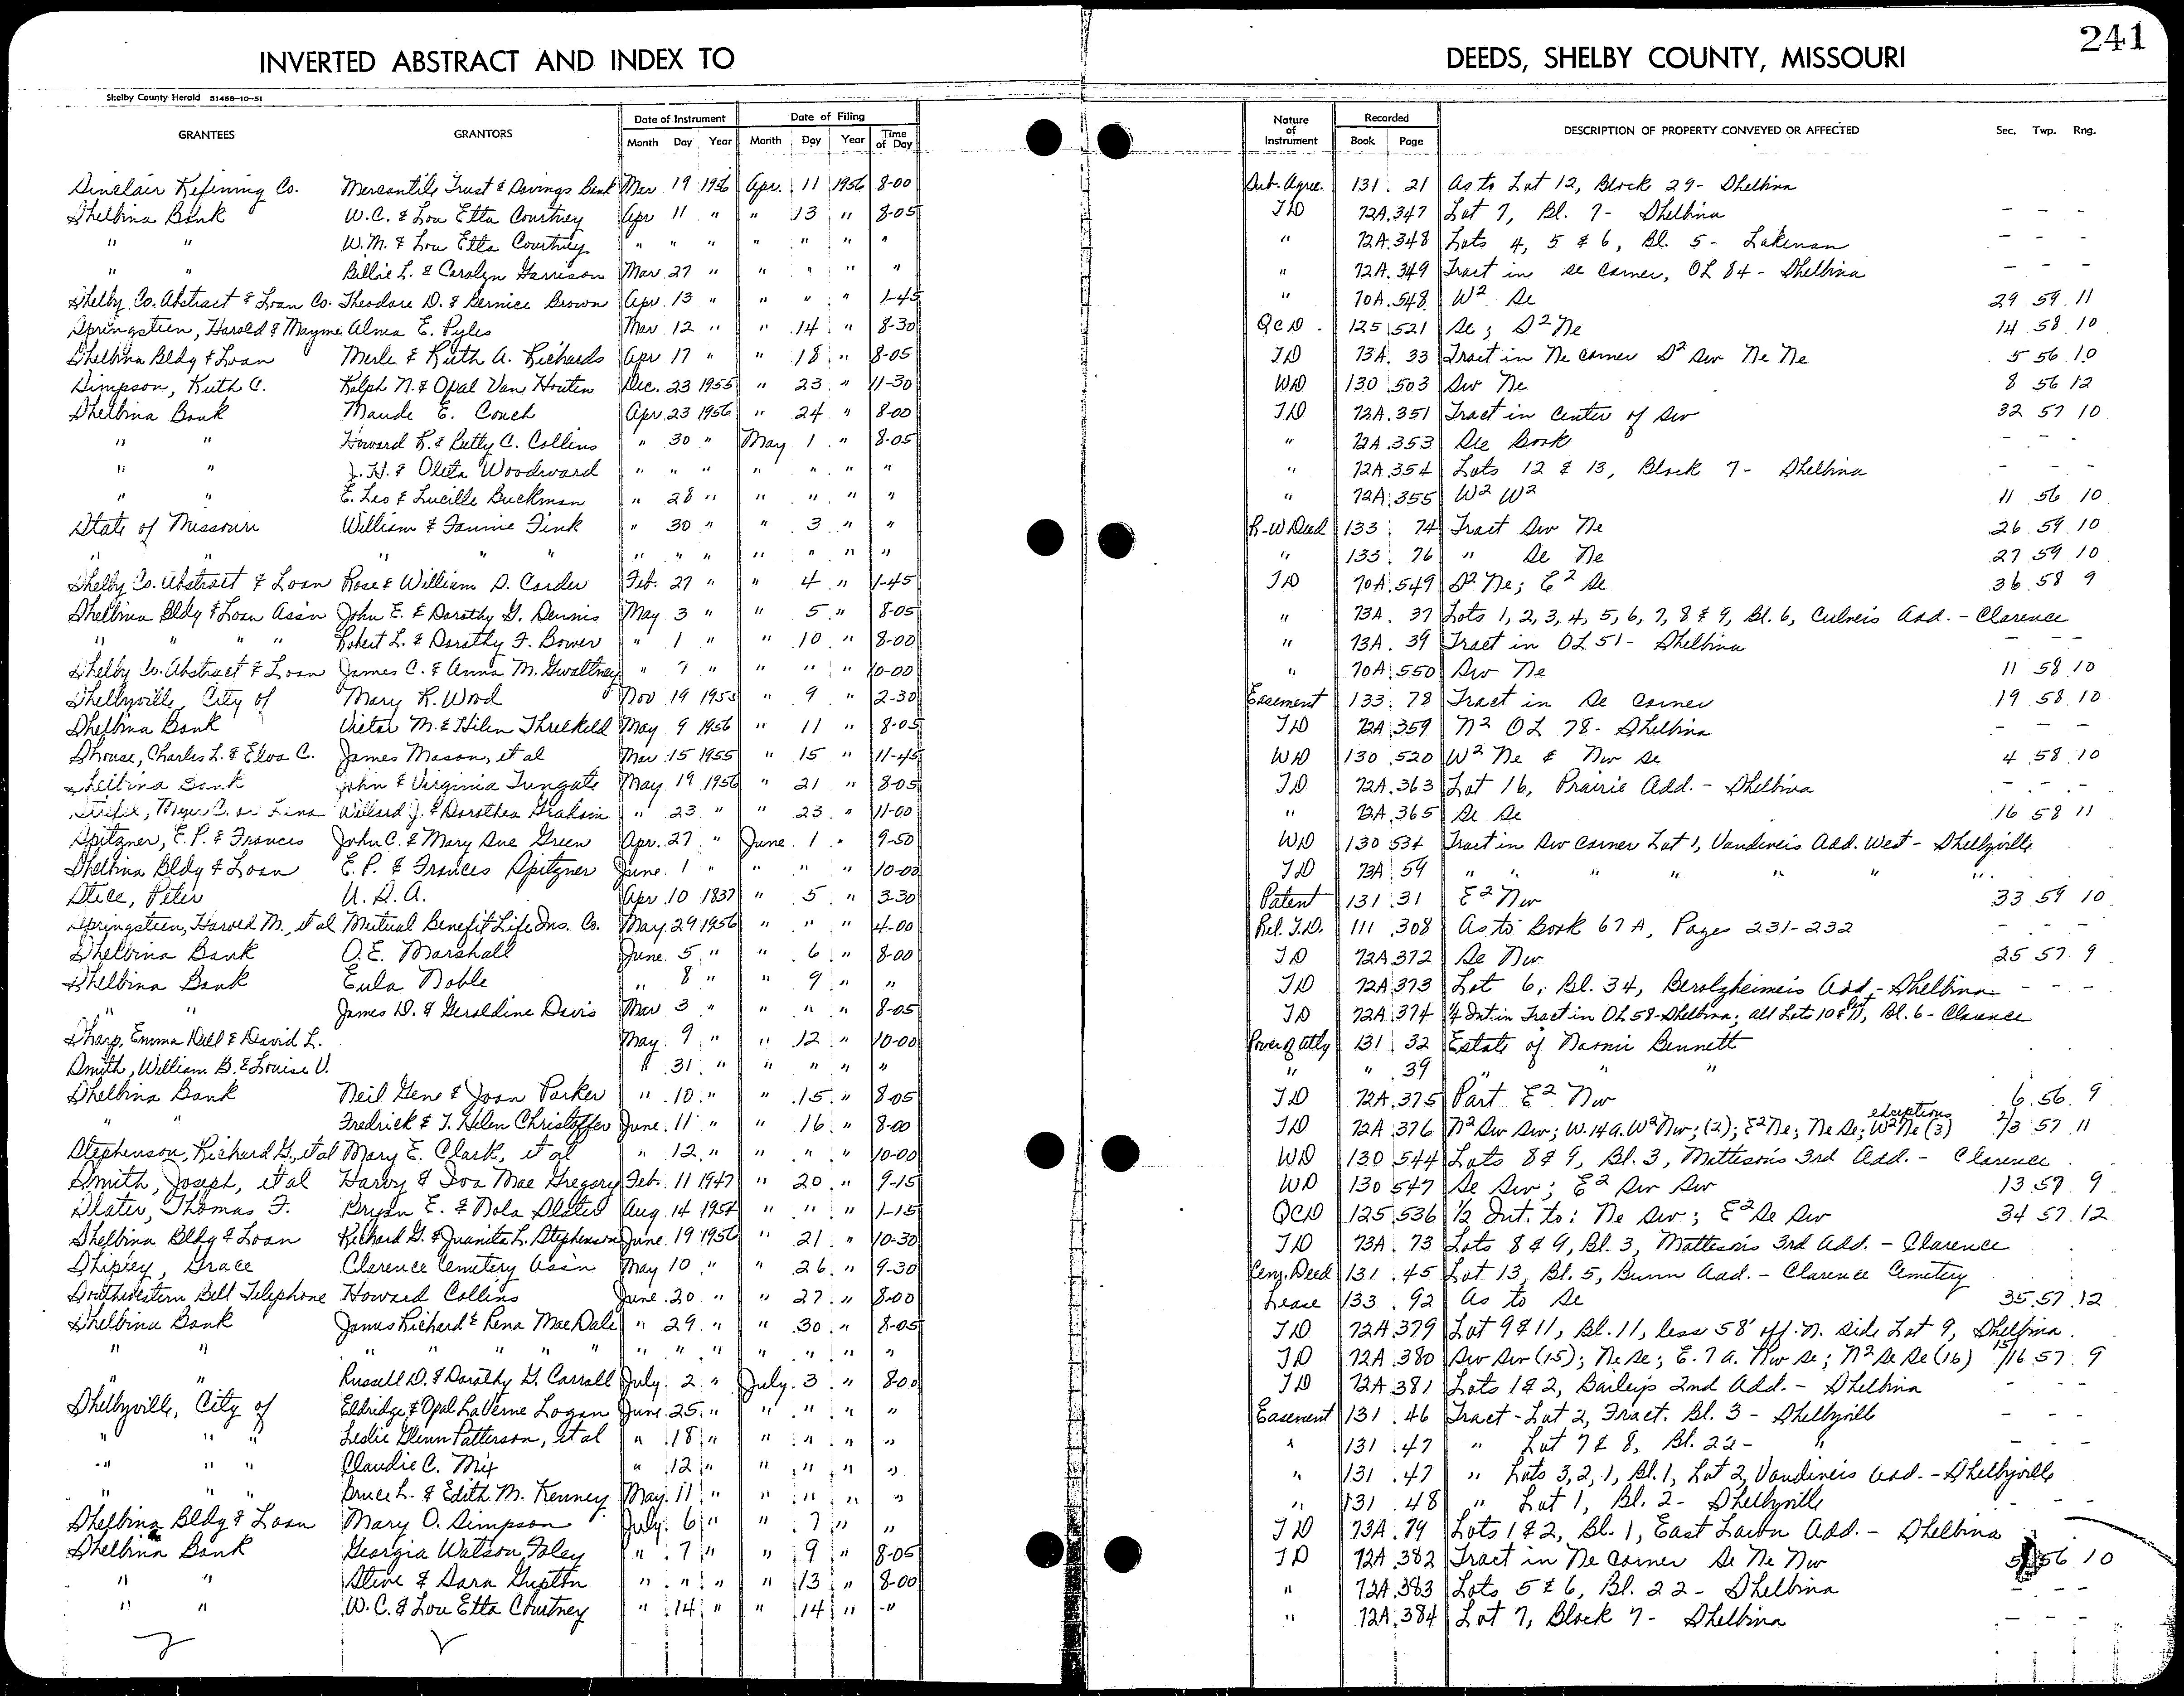 241
INVERTED ABSTRACT AND INDEX TO DEEDS, SHELBY COUNTY, MISSOURI
Shelby County Herald 51458-10-51
GRANTEES GRANTORS Date of Instrument Date of Filing Nature of Instrument Recorded DESCRIPTION OF PROPERTY CONVEYED OR AFFECTED Sec. Twp. Rng.
Month Day Year Month Day Year Time of Day Book Page
Sinclair Refining Co. Mercantile Trust & Savings Bank Mar 19 1956 Apr. 11 1956 8-00 Sub. Agree. 131 21 As to Lot 12, Block 29 - Shelbina
Shelbina Bank W.C. & Lou Etta Courtney Apr 11 " " 13 " 8-05 TD 72A 347 Lot 7, Bl. 7 - Shelbina - - -
" " W.M. & Lou Etta Courtney " " " " " " " " 72A 348 Lots 4, 5 & 6, Bl. 5 - Lakenan - - -
" " Billie L. & Carolyn Garrison Mar 27 " " " " " " 72A 349 Tract in Se corner, OL 84 - Shelbina - - -
Shelby Co. Abstract & Loan Co. Theodore D. & Bernice Brown Apr. 13 " " " " 1-45 " 70A 548 W2 Se 29 59 11
Springsteen, Harold & Mayme Alma E. Pyles Mar 12 " " 14 " 8-30 QCD 125 521 Se; S2 Ne 14 58 10
Shelbina Bldg & Loan Merle & Ruth A. Richards Apr 17 " " 18 " 8-05 TD 73A 33 Tract in Ne corner S2 Sw Ne Ne 5 56 10
Simpson, Ruth C. Ralph N. & Opal Van Houten Dec. 23 1955 " 23 " 11-30 WD 130 503 Sw Ne 8 56 12
Shelbina Bank Maude E. Couch Apr 23 1956 " 24 " 8-00 TD 72A 351 Tract in Center of Sw 32 57 10
" " Howard R. & Betty C. Collins " 30 " May 1 " 8-05 " 72A 353 See Book - - -
" " J.H. & Oleta Woodward " " " " " " " " 72A 354 Lots 12 & 13, Block 7 - Shelbina - - -
" " E. Leo & Lucille Buckman " 28 " " " " " " 72A 355 W2 W2 11 56 10
State of Missouri William & Fannie Fink " 30 " " 3 " " R-W Deed 133 74 Tract Sw Ne 26 59 10
" " " " " " " " " " " " " 133 76 " Se Ne 27 59 10
Shelby Co. Abstract & Loan Rose & William S. Carder Feb. 27 " " 4 " 1-45 TD 70A 549 S2 Ne; E2 Se 36 58 9
Shelbina Bldg & Loan Ass'n John E. & Dorothy G. Dennis May 3 " " 5 " 8-05 " 73A 37 Lots 1, 2, 3, 4, 5, 6, 7, 8 & 9, Bl. 6, Culver's Add. - Clarence
" " " " Robert L. & Dorothy F. Bower " 1 " " 10 " 8-00 " 73A 39 Tract in OL 51 - Shelbina - - -
Shelby Co. Abstract & Loan James C. & Anna M. Gwaltney " 7 " " " " 10-00 " 70A 550 Sw Ne 11 58 10
Shelbyville, City of Mary R. Wood Nov 19 1955 " 9 " 2-30 Easement 133 78 Tract in Se corner 19 58 10
Shelbina Bank Victor M. & Helen Threlkeld May 9 1956 " 11 " 8-05 TD 72A 359 N2 OL 78 - Shelbina - - -
Shouse, Charles L. & Elva C. James Mason, et al Mar 15 1955 " 15 " 11-45 WD 130 520 W2 Ne & Nw Se 4 58 10
Shelbina Bank John & Virginia Tungate May 19 1956 " 21 " 8-05 TD 72A 363 Lot 16, Prairie Add. - Shelbina - - -
or Lena Willard J. & Dorothea Graham " 23 " " 23 " 11-00 " 72A 365 Se Se 16 58 11
Spitzner, E.P. & Frances John C. & Mary Sue Green Apr. 27 " June 1 " 9-50 WD 130 534 Tract in Sw corner Lot 1, Vandiver's Add. West - Shelbyville
Shelbina Bldg & Loan E.P. & Frances Spitzner June 1 " " " " 10-00 TD 73A 59 " " " " " "
Stice, Peter U.S.A. Apr 10 1837 " 5 " 3-30 Patent 131 31 E2 Nw 33 59 10
Springsteen, Harold M., et al Mutual Benefit Life Ins. Co. May 29 1956 " " " 4-00 Rel. T.D. 111 308 As to Book 67A, Pages 231-232 - - -
Shelbina Bank O.E. Marshall June 5 " " 6 " 8-00 TD 72A 372 Se Nw 25 57 9
Shelbina Bank Eula Noble " 8 " " 9 " " TD 72A 373 Lot 6, Bl. 34, Berolzheimer's Add. - Shelbina - - -
" " James D. & Geraldine Davis Mar 3 " " " " 8-05 TD 72A 374 1/4 Int. in Tract in OL 58 - Shelbina; all Lots 10 & Prt 11, Bl. 6 - Clarence
Sharp, Emma Dell & David L. May 9 " " 12 " 10-00 Power of Atty 131 32 Estate of Naomi Bennett
Smith, William B. & Louise V. " 31 " " " " " " " 39 " " "
Shelbina Bank Neil Gene & Joan Parker " 10 " " 15 " 8-05 TD 72A 375 Part E2 Nw 6 56 9
" " Fredrick & T. Helen Christoffer June 11 " " 16 " 8-00 TD 72A 376 N2 Sw Sw; W. 14 a. W2 Nw; (2); E2 Ne; Ne Se; W2 Ne (3) exceptions 2/3 57 11
Stephenson, Richard G., et al Mary E. Clark, et al " 12 " " " " 10-00 WD 130 544 Lots 8 & 9, Bl. 3, Matteson's 3rd Add. - Clarence
Smith, Joseph, et al Harvy & Iva Mae Gregory Feb. 11 1947 " 20 " 9-15 WD 130 547 Se Sw; E2 Sw Sw 13 57 9
Slater, Thomas F. Bryan E. & Nola Slater Aug 14 1954 " " " 1-15 QCD 125 536 1/2 Int. to: Ne Sw; E2 Se Sw 34 57 12
Shelbina Bldg & Loan Richard G. & Juanita L. Stephenson June 19 1956 " 21 " 10-30 TD 73A 73 Lots 8 & 9, Bl. 3, Matteson's 3rd Add. - Clarence
Shipley, Grace Clarence Cemetery Ass'n May 10 " " 26 " 9-30 Cem. Deed 131 45 Lot 13, Bl. 5, Bunn Add. - Clarence Cemetery
Southwestern Bell Telephone Howard Collins June 20 " " 27 " 8-00 Lease 133 92 As to Se 35 57 12
Shelbina Bank James Richard & Rena Mae Dale " 29 " " 30 " 8-05 TD 72A 379 Lot 9 & 11, Bl. 11, less 58' off N. side Lot 9, Shelbina
" " " " " " " " " " " " " " TD 72A 380 Sw Sw (15); Ne Se; E. 7 a. Nw Se; N2 Se Se (16) 15/16 57 9
" " Russell D. & Dorothy G. Carroll July 2 " July 3 " 8-00 TD 72A 381 Lots 1 & 2, Bailey's 2nd Add. - Shelbina - - -
Shelbyville, City of Eldridge & Opal LaVerne Logan June 25 " " " " " Easement 131 46 Tract - Lot 2, Fract. Bl. 3 - Shelbyville - - -
" " " Leslie Glenn Patterson, et al " 18 " " " " " " 131 47 " Lot 7 & 8, Bl. 22 - " - - -
" " " Claudie C. Mix " 12 " " " " " " 131 47 " Lots 3, 2, 1, Bl. 1, Lot 2, Vandiver's Add. - Shelbyville
" " " Bruce L. & Edith M. Kenney May 11 " " " " " " 131 48 " Lot 1, Bl. 2 - Shelbyville - - -
Shelbina Bldg & Loan Mary O. Simpson July 6 " " 7 " " TD 73A 79 Lots 1 & 2, Bl. 1, East Lawn Add. - Shelbina
Shelbina Bank Georgia Watson Foley " 7 " " 9 " 8-05 TD 72A 382 Tract in Ne corner Se Ne Nw 5 56 10
" " Steve & Sara Gupton " " " " 13 " 8-00 " 72A 383 Lots 5 & 6, Bl. 22 - Shelbina - - -
" " W.C. & Lou Etta Courtney " 14 " " 14 " " " 72A 384 Lot 7, Block 7 - Shelbina - - -